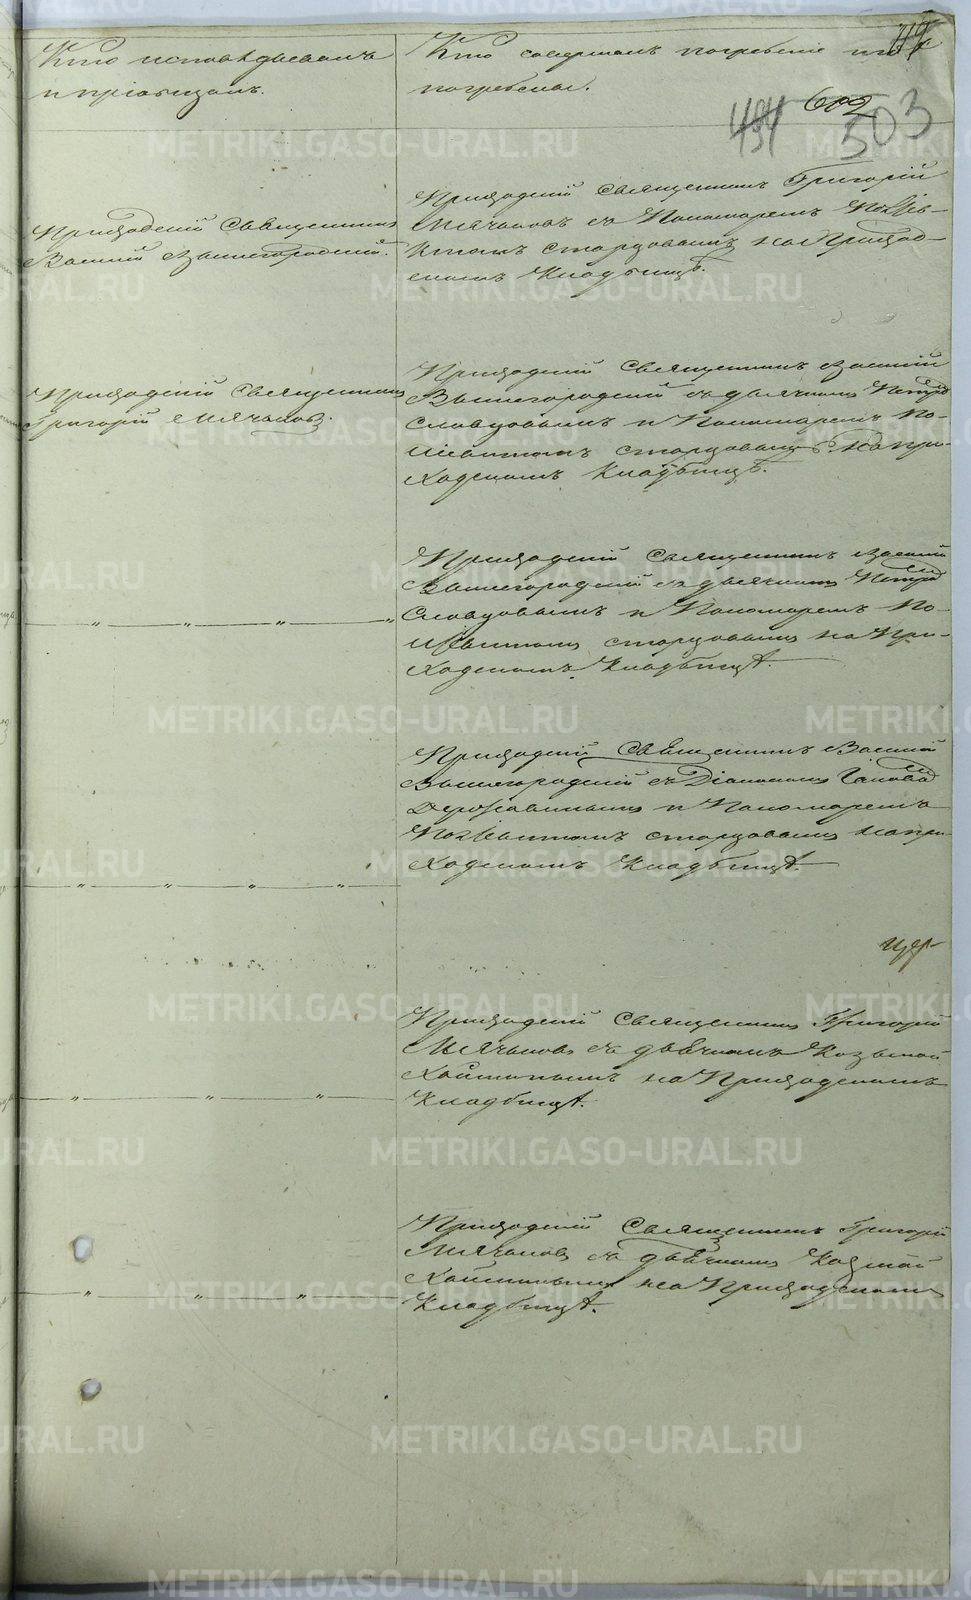 Кто исповѣдывалъ
и пріобщалъ.
Кто совершалъ погребеніе и гдѣ
погребены.
602
494
503
Приходскій Священникъ
Василій Вышегородскій.
Приходскій Священникъ Григорій
Мячковъ съ Пономаремъ
стардовымъ на Приход-
скомъ Кладбищѣ.
Приходскій Священникъ
Григорій Мячковъ.
Приходскій Священникъ Василій
Вышегородскій съ дьячкомъ Петромъ
Словцовымъ и Пономаремъ По-
стардовымъ на при-
ходскомъ Кладбищѣ.
Приходскій Священникъ Василій
Вышегородскій съ дьячкомъ Петромъ
Словцовымъ и Пономаремъ По-
стардовымъ на При-
ходскомъ Кладбищѣ.
Приходскій Священникъ Василій
Вышегородскій съ Діакономъ
Державинымъ и Пономаремъ
стардовымъ на при-
ходскомъ Кладбищѣ.
Приходскій Священникъ Григорій
Мячковъ съ дьячкомъ Козьмой
на Приходскомъ
Кладбищѣ.
Приходскій Священникъ Григорій
Мячковъ съ дьячкомъ Козмой
на Приходскомъ
Кладбищѣ.
METRIKI.GASO-URAL.RU